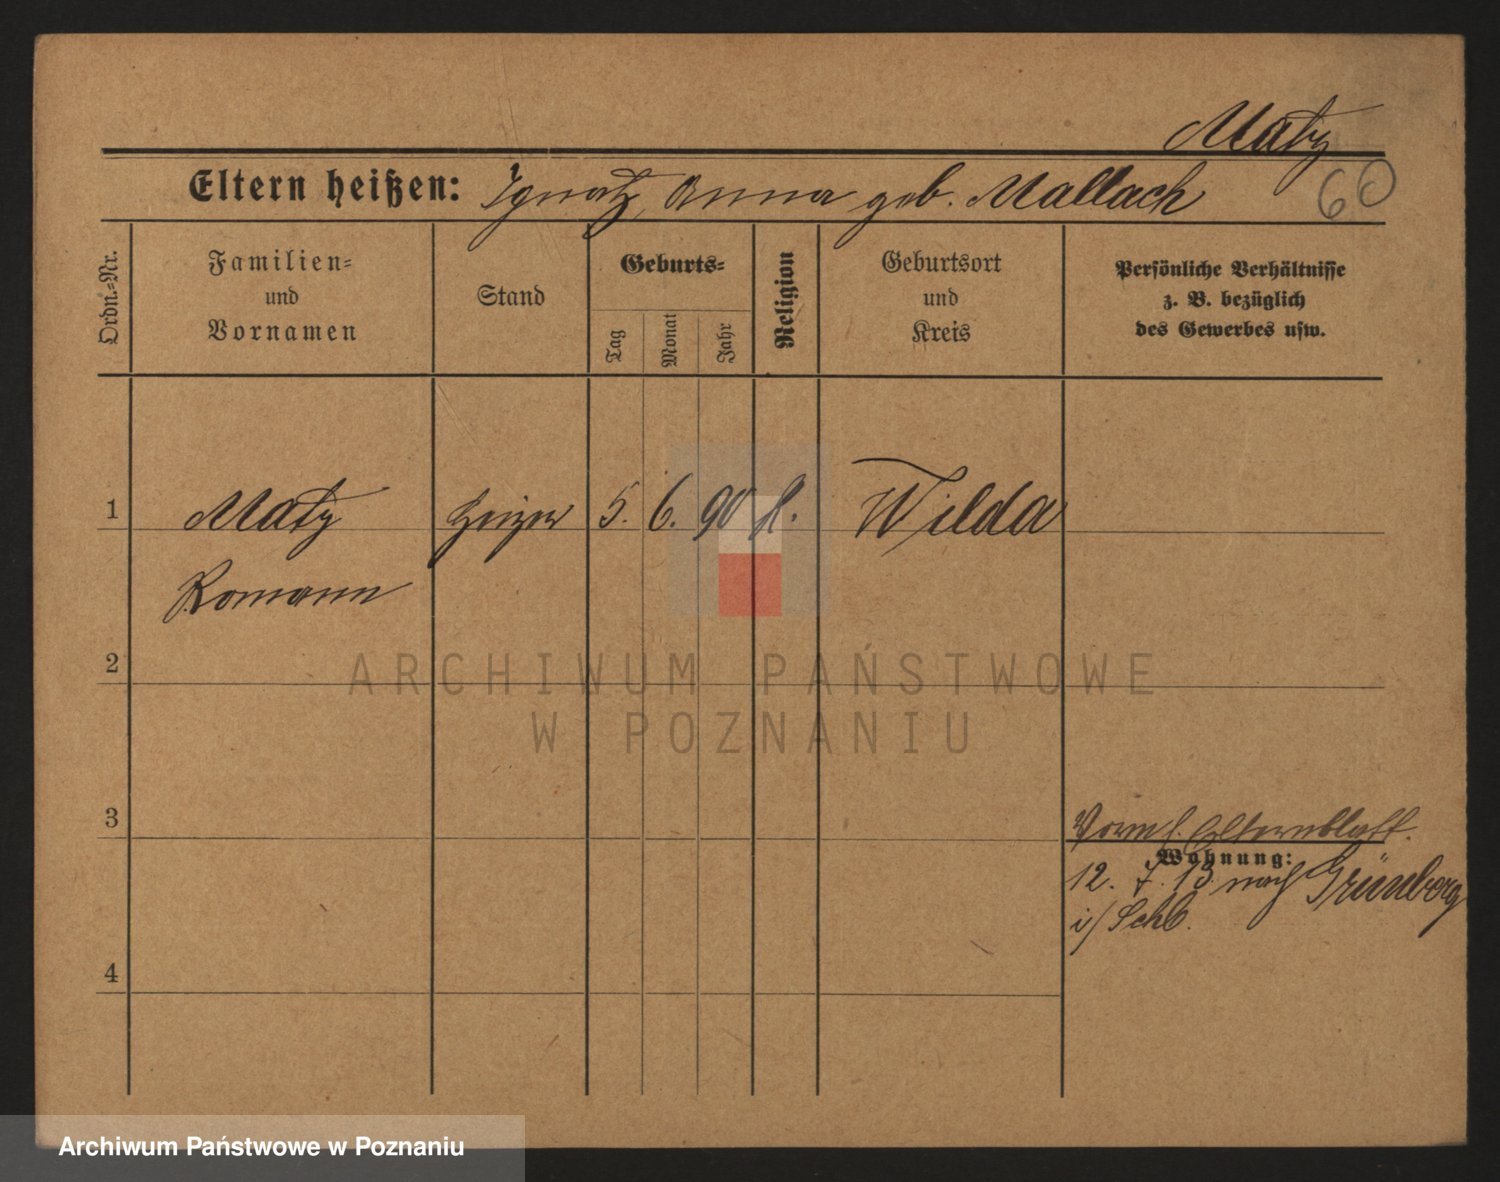 Matz
Eltern heißen: Ignatz, Anna geb. Mallach
60
Ordn.-Nr.
Familien-
und
Vornamen
Stand
Geburts-
Tag
Monat
Jahr
Religion
Geburtsort
und
Kreis
Persönliche Verhältnisse
z. B. bezüglich
des Gewerbes usw.
1 Matz Heizer 5. 6. 90 k. Wilda
Romann
2
ARCHIWUM PAŃSTWOWE
W POZNANIU
3
Elternblatt.
Wohnung:
12. 7. 13. nach Grünberg
i/Schl.
4
Archiwum Państwowe w Poznaniu